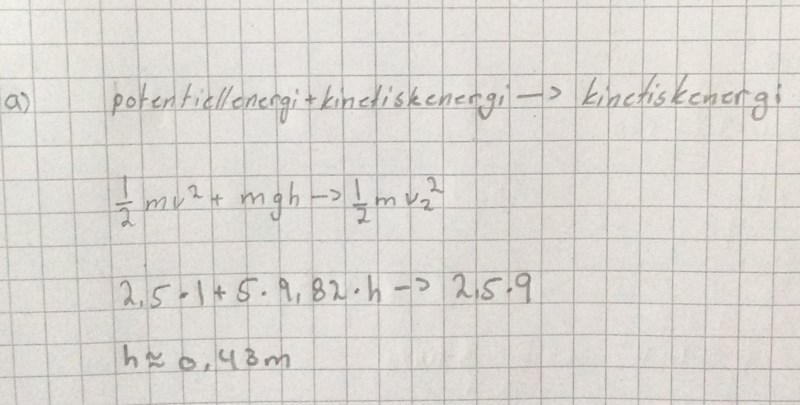 a) potentiellenergi+kinetiskenergi -> kinetiskenergi
1/2 mv² + mgh -> 1/2 mv₂²
2,5·1+5·9,82·h -> 2,5·9
h≈0,43m